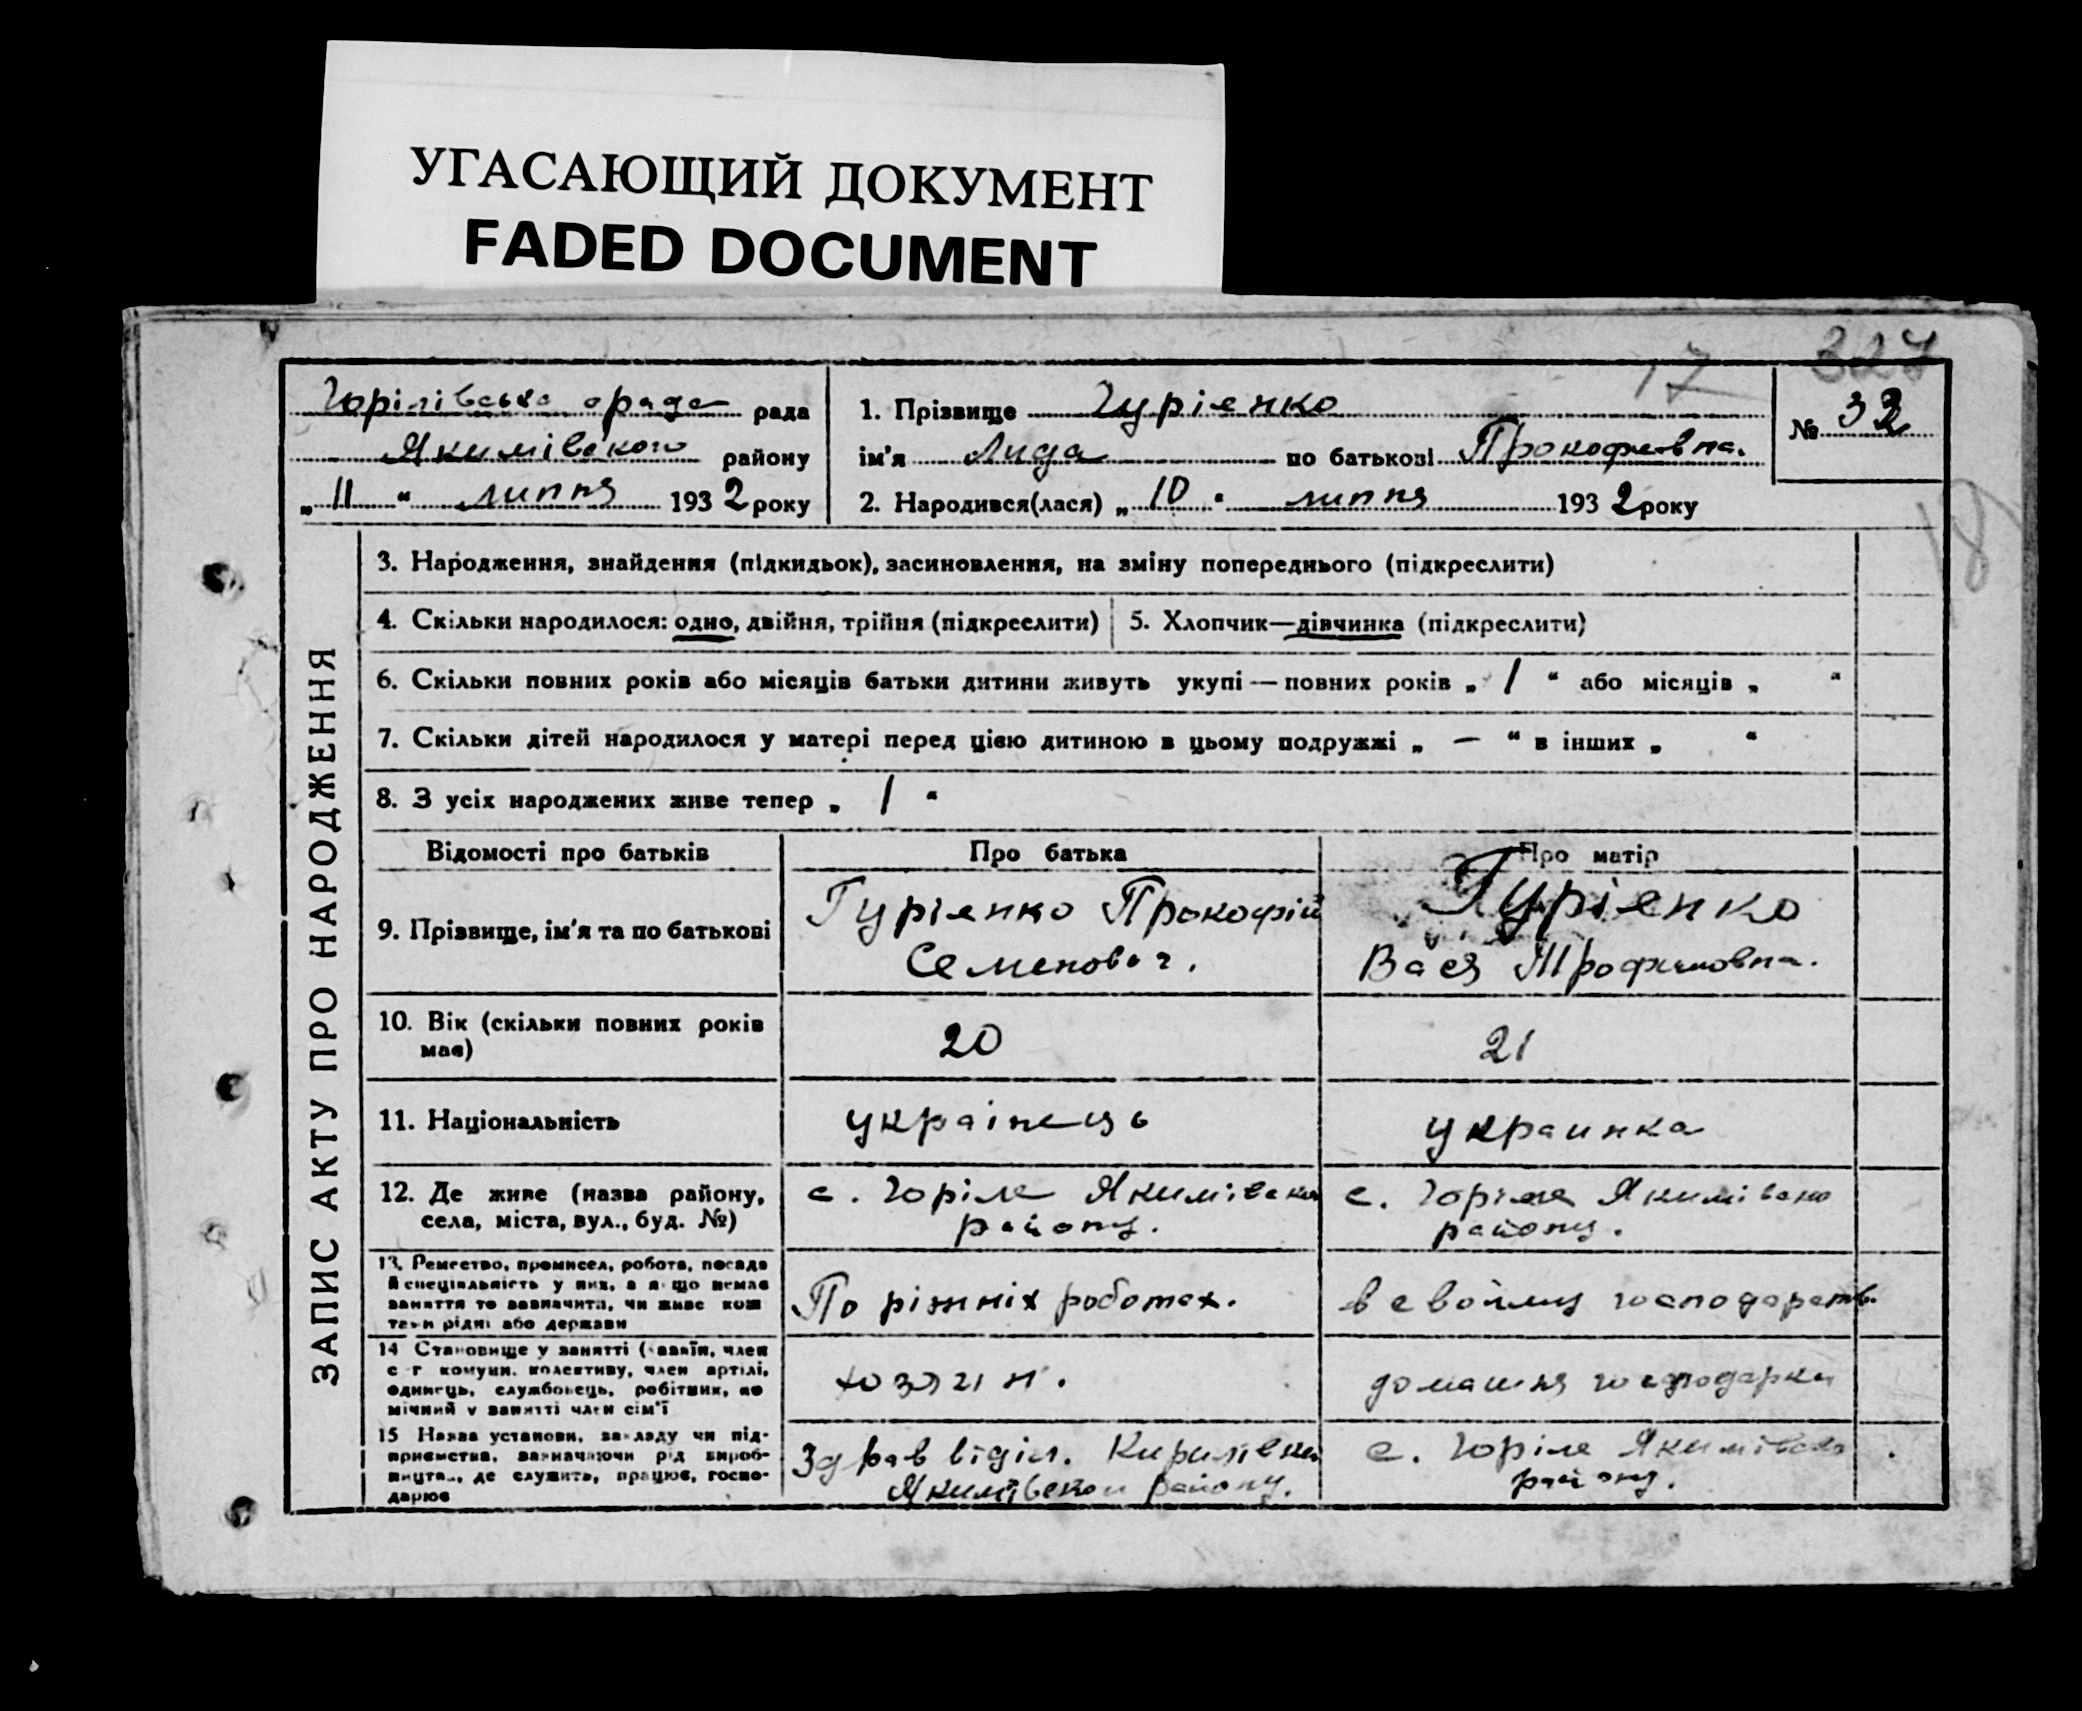 УГАСАЮЩИЙ ДОКУМЕНТ
FADED DOCUMENT
327
17
Горілівська рада
1. Прізвище Гурієнко
№ 32
Якимівского району
ім'я Лида по батькові Прокофьевна.
„ 11 “ липня 1932 року
2. Народився(лася) „ 10 “ липня 1932 року
18
ЗАПИС АКТУ ПРО НАРОДЖЕННЯ
3. Народження, знайдення (підкидьок), засиновлення, на зміну попереднього (підкреслити)
4. Скільки народилося: одно, двійня, трійня (підкреслити)
5. Хлопчик—дівчинка (підкреслити)
6. Скільки повних років або місяців батьки дитини живуть укупі — повних років „ 1 “ або місяців „ “
7. Скільки дітей народилося у матері перед цією дитиною в цьому подружжі „ — “ в інших „ “
8. З усіх народжених живе тепер „ 1 “
Відомості про батьків
Про батька
Про матір
9. Прізвище, ім'я та по батькові
Гурієнко Прокофій
Семенович.
Гурієнко
Вася Трофимовна.
10. Вік (скільки повних років
має)
20
21
11. Національність
українець
украинка
12. Де живе (назва району,
села, міста, вул., буд. №)
с. Горіле Якимівського
району.
с. Горіле Якимівско
району.
13. Ремество, промисел, робота, посада
й спеціяльність у них, а якщо немає
заняття то зазначити, чи живе кош
тами рідні або держави
По ріжніх роботах.
в своїому господарств.
14 Становище у занятті (хазяїн, член
с-г комуни, колективу, член артілі,
одинець, службовець, робітник, по
мічний у занятті член сім'ї
хозяін.
домашня господарка
15 Назва установи, закладу чи під-
приємства, зазначаючи рід вироб-
ництва, де служить, працює, госпо-
дарює
Здраввідділ. Кирилівки
Якимівскои району.
с. Горіле Якимівско
району.